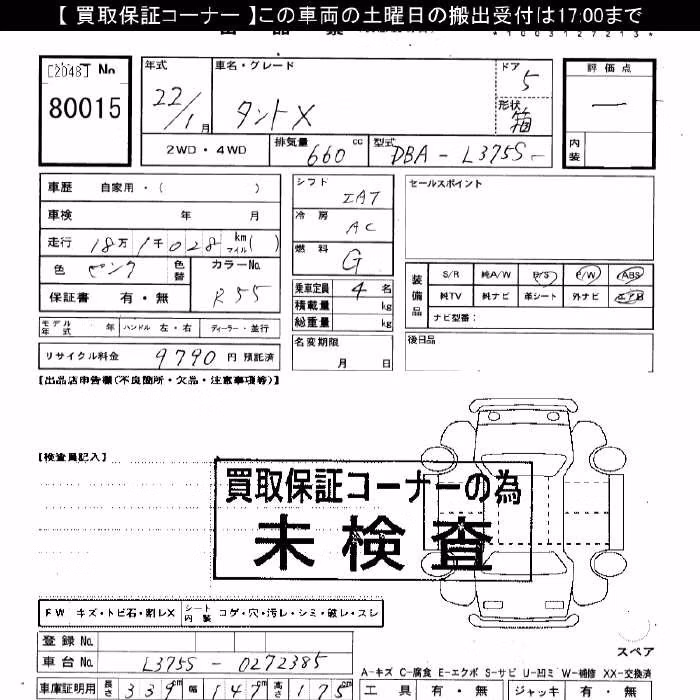 【 買取保証コーナー 】この車両の土曜日の搬出受付は17:00まで
*1003127213*
[2048] No
80015
年式
22/1月
車名・グレード
タントX
ドア
5
形状
箱
評価点
—
内装
2WD・4WD
排気量
660 cc
型式
DBA - L375S -
車歴 自家用・( )
車検 年 月
走行 18万1千028 km マイル ( )
色 ピンク
色替
カラーNo.
R55
保証書 有・無
シフト
IAT
冷房
AC
燃料
G
乗車定員 4 名
積載量 kg
総重量 kg
セールスポイント
装備品
S/R 純A/W P/S P/W ABS
純TV 純ナビ 革シート 外ナビ エアB
ナビ型番:
モデル年式 年 ハンドル 左・右 ディーラー・並行
リサイクル料金 9790 円 預託済
名変期限
月 日
後日品
【出品店申告欄(不良箇所・欠品・注意事項等)】
【検査員記入】
買取保証コーナーの為
未検査
FW キズ・トビ石・割レX
シート内装 コゲ・穴・汚レ・シミ・破レ・スレ
登録 No.
車台 No. L375S - 0272385
車庫証明用 長さ 339cm 幅 147cm 高さ 175cm
スペア
A-キズ C-腐食 E-エクボ S-サビ U-凹ミ W-補修 XX-交換済
工具 有・無 ジャッキ 有・無